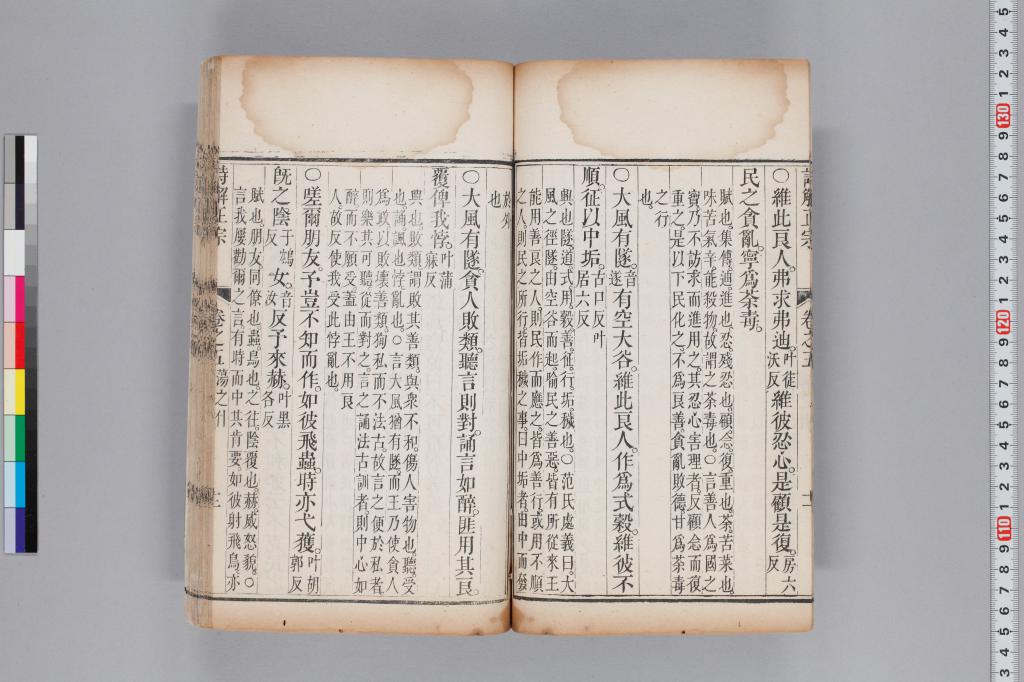 詩解正宗 卷之五
○維此良人。弗求弗迪。叶徒沃反維彼忍心。是顧是復。房六反
民之貪亂。寧為荼毒。
賦也。集傳迪。進也。忍殘忍也。顧。念。復。重也。荼。苦菜也。
味苦氣辛。能殺物。故謂之荼毒也。○言善人為國之
寶。乃不訪求而進用之。其忍心害理者。反顧念而復
重之。是以下民化之。不為良善。貪亂敗德。甘為荼毒
之行
也。
○大風有隧。音遂有空大谷。維此良人。作為式穀。維彼不
順。征以中垢。古口反叶居六反
興也。隧。道。式。用。穀。善。征。行。垢。穢也。○范氏處義曰。大
風之徑隧。由空谷而起。喻民之善惡。皆有所從來。王
能用善良之人。則民作而應之。皆為善行。或用不順
之人。則民之所行皆垢穢之事。曰中垢者。由中而發
於外
也
○大風有隧。貪人敗類。聽言則對。誦言如醉。匪用其良。
覆俾我悖。叶蒲寐反
興也。敗類。謂敗其善類。與眾不和。傷人害物也。聽。受
也。誦。諷也。悖。亂也。○言大風猶有隧。而王乃使貪人
為政。以敗壞善類。狥私而不法古。故言之便於私者。
則樂其可聽。從而對之。言之誦法古訓者。則中心如
醉而不願受。蓋由王不用良
人。故反使我受此悖亂也。
○嗟爾朋友。予豈不知而作。如彼飛蟲。時亦弋獲。叶胡郭反
旣之陰于鴆反女。音汝反予來赫。叶黑各反
賦也。朋友。同僚也。蟲。鳥也。之。往。陰。覆也。赫。威怒貌。○
言我屢勸爾之言。有時而中其肯要。如彼射飛鳥。亦
詩解正宗 卷之五 蕩之什 十三